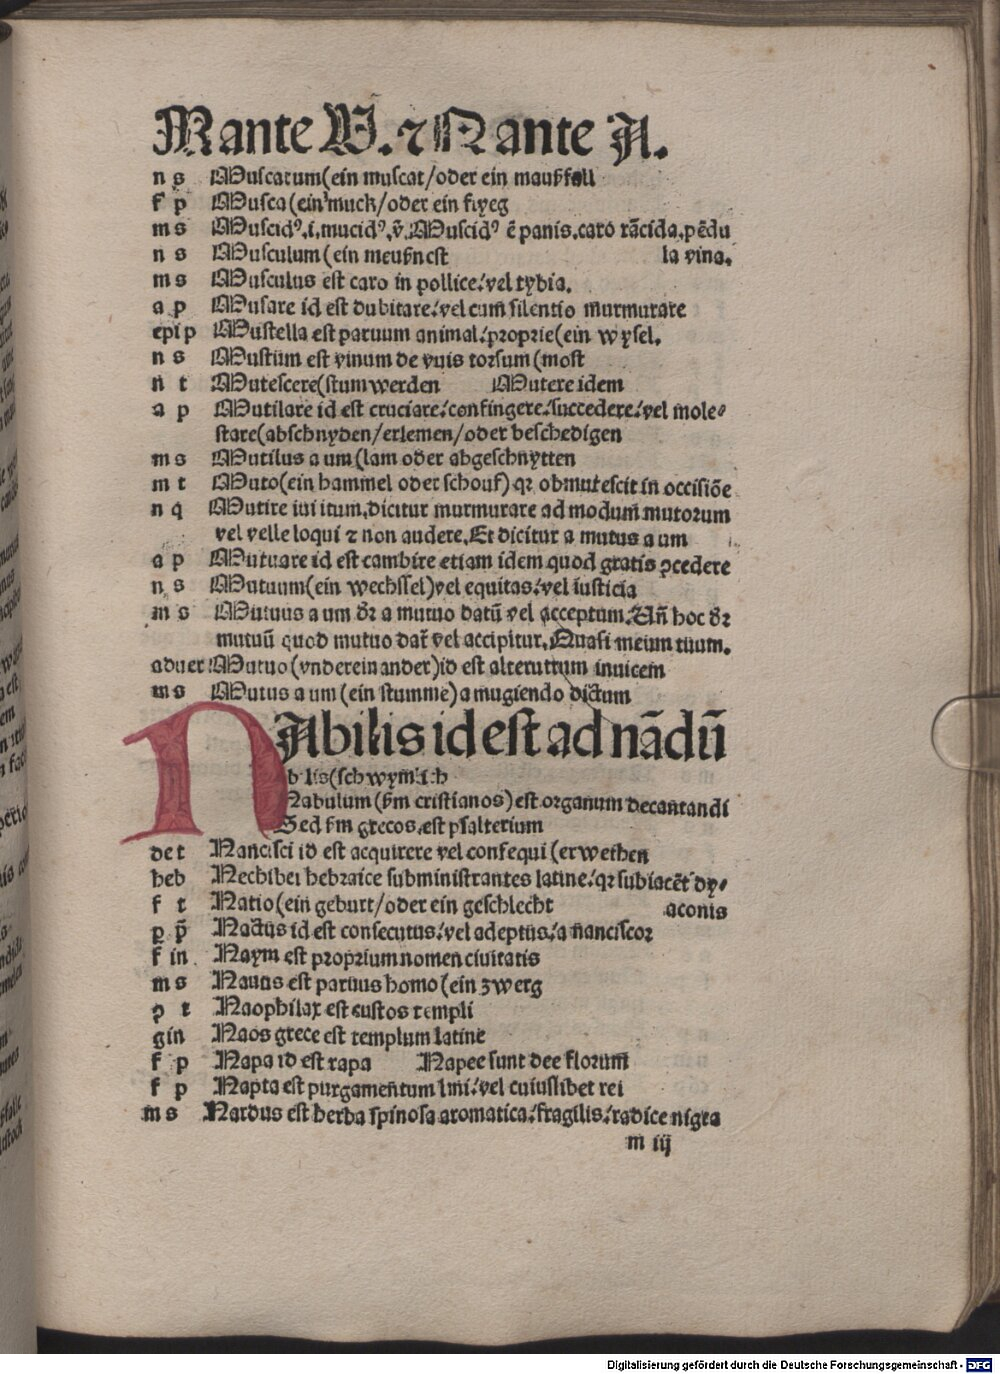 M ante V. ⁊ N ante A.
n s Muscatum(ein muscat/oder ein maußfell
f p Musca(ein muck/oder ein flyeg
m s Muscidꝰ.i.mucidꝰ.v̄.Muscidꝰ ē panis.caro rācida.pēdu
n s Musculum(ein meußnest la vina.
m s Musculus est caro in pollice:/vel tybia.
a p Musare id est dubitare:/vel cum silentio murmurare
epi p Mustella est paruum animal:/proprie(ein wysel.
n s Mustum est vinum de vuis torsum(most
n t Mutescere(stum werden Mutere idem
a p Mutilare id est cruciare:/confingere:/succedere:/vel mole⸗
stare(abschnyden/erlemen/oder beschedigen
m s Mutilus a um(lam oder abgeschnytten
m t Muto(ein hammel oder schouf)qꝛ obmutescit in occisiōe
n q Mutire iui itum.dicitur murmurare ad modum mutorum
vel velle loqui ⁊ non audere.Et dicitur a mutus a um
a p Mutuare id est cambire etiam idem quod gratis ꝓcedere
n s Mutuum(ein wechssel)vel equitas:/vel iusticia
m s Mutuus a um dꝛ a mutuo datū vel acceptum.Uñ hoc dꝛ
mutuū quod mutuo dat̄ vel accipitur.Quasi meum tuum.
aduer Mutuo(vnderein ander)id est alterutrum inuicem
m s Mutus a um(ein stumme)a mugiendo dictum
NAbilis id est ad nādū
bilis(schwymlich
Nabulum(ẜm cristianos)est organum decantandi
Sed ẜm grecos.est psalterium
de t Nancisci id est acquirere vel consequi(erwethen
heb Nechibei hebraice subministrantes latine:/qꝛ subiacēt dy⸗
f t Natio(ein geburt/oder ein geschlecht aconis
p p̄ Nactus id est consecutus:/vel adeptus:/a nanciscor
f in Naym est proprium nomen ciuitatis
m s Nanus est paruus homo(ein zwerg
p t Naophilax est custos templi
g in Naos grece est templum latine
f p Napa id est rapa Napee sunt dee florum
f p Napta est purgamentum lini:/vel cuiuslibet rei
m s Nardus est herba spinosa aromatica:/fragilis:/radice nigra
m iij
Digitalisierung gefördert durch die Deutsche Forschungsgemeinschaft - DFG